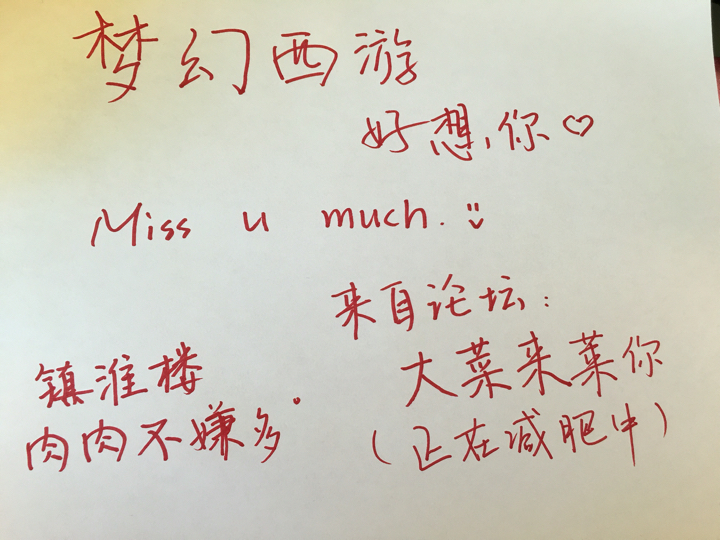 梦幻西游
好想,你♡
Miss u much. :)
来自论坛:
大菜来菜你
(正在减肥中)
镇淮楼
肉肉不嫌多。